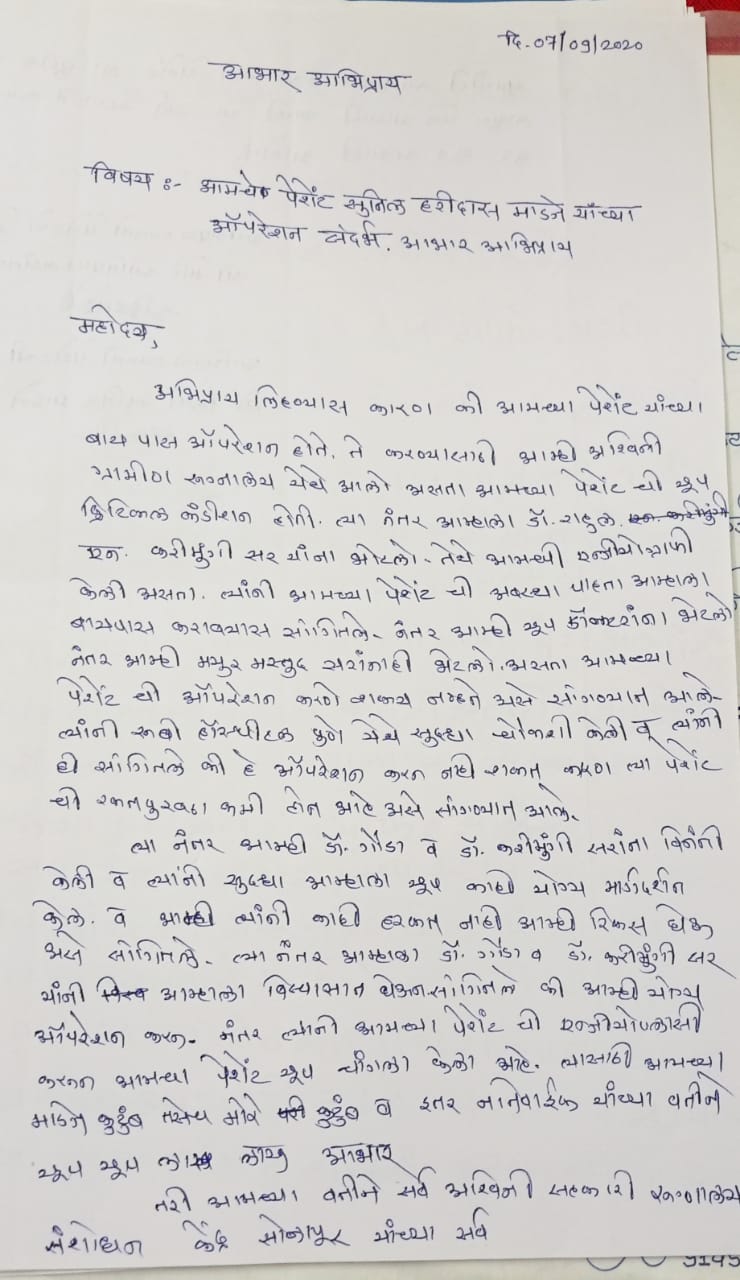 दि. 07/09/2020
आभार अभिप्राय
विषय :- आमचे पेशेंट सुनिल हरीदास माडने यांच्या
ऑपरेशन संदर्भ. आभार अभिप्राय
महोदय,
अभिप्राय लिहण्यास कारण की आमच्या पेशेंट यांच्या
बाय पास ऑपरेशन होते. ते करण्यासाठी आम्ही अश्विनी
ग्रामीण रुग्नालय येथे आलो असता आमच्या पेशेंट ची खूप
क्रिटिकल कंडीशन होती. त्या नंतर आम्हाला डॉ. राहुल
एन. करीमुंगी सर यांना भेटलो. तेथे आमची एन्जीयोग्राफी
केली असता. त्यांनी आमच्या पेशेंट ची अवस्था पाहता आम्हाला
बायपास करावयास सांगितले. नंतर आम्ही खूप डॉक्टरांना भेटलो
नंतर आम्ही मयुर मस्तुद सरांनाही भेटलो. असता आमच्या
पेशेंट ची ऑपरेशन करणे शक्य नव्हते असे सांगण्यात आले.
त्यांनी रुबी हॉस्पीटल पुणे येथे सुद्धा चौकशी केली व त्यांनी
ही सांगितले की हे ऑपरेशन करु नाही शकत कारण त्या पेशेंट
ची रक्तपुरवठा कमी होत आहे असे सांगण्यात आले.
त्या नंतर आम्ही डॉ. गौडा व डॉ. करीमुंगी सरांना विनंती
केली व त्यांनी सुद्धा आम्हाला खूप काही योग्य मार्गदर्शन
केले. व आम्ही त्यांनी काही हरकत नाही आम्ही रिक्स घेऊ
असे सांगितले. त्या नंतर आम्हाला डॉ. गौडा व डॉ. करीमुंगी सर
यांनी आम्हाला विश्वासात घेऊन सांगितले की आम्ही योग्य
ऑपरेशन करु. नंतर त्यांनी आमच्या पेशेंट ची एन्जीयोप्लास्टी
करून आमचा पेशेंट खूप चांगला केला आहे. त्यासाठी आमच्या
माडने कुटुंब तसेच मोरे कुटुंब व इतर नातेवाईक यांच्या वतीने
खूप खूप लाख लाख आभार
तरी आमच्या वतीने सर्व अश्विनी सहकारी रुग्णालय
संशोधन केंद्र सोलापूर यांच्या सर्व